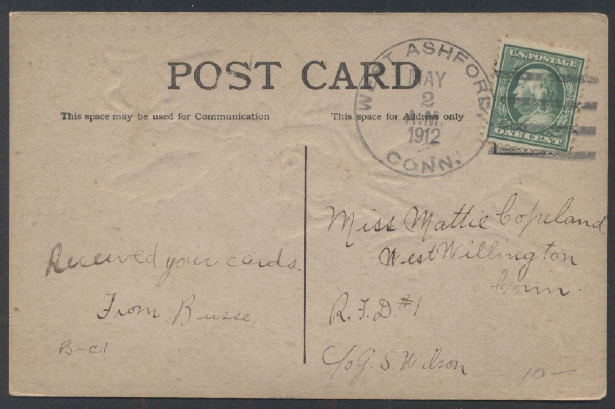 POST CARD
This space may be used for Communication
This space for Address only
WEST ASHFORD,
MAY
2
A.M.
1912
CONN.
U.S. POSTAGE
ONE CENT
Received your cards.
From Busse.
B-C1
Miss Mattie Copeland
West Willington
Conn.
R.F.D #1
c/o G. S. Wilson
10-